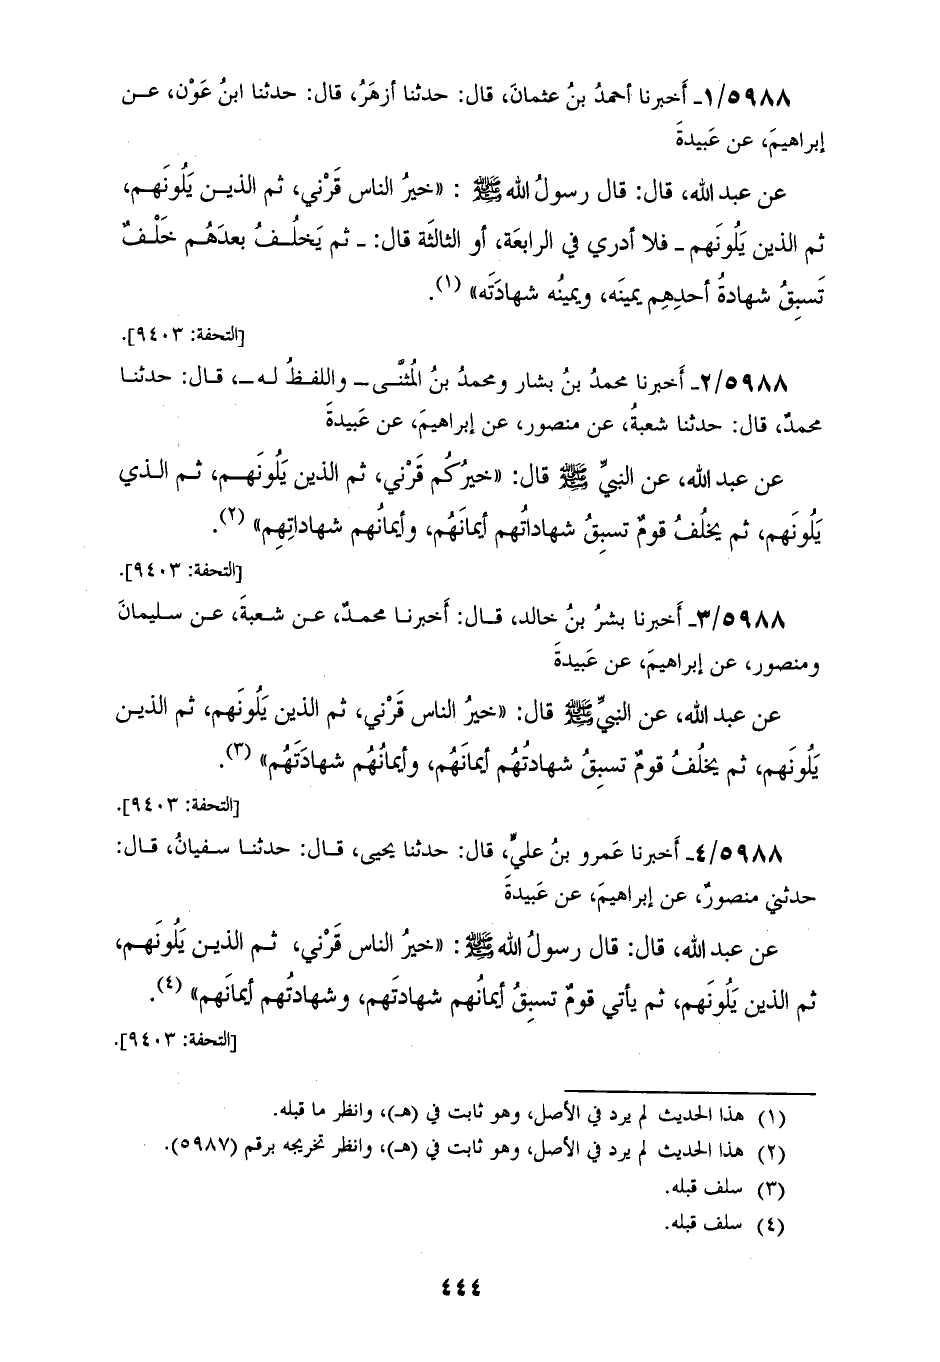 ١/٥٩٨٨ـ أَخبرنا أحمدُ بنُ عثمانَ، قال: حدثنا أزهَرُ، قال: حدثنا ابنُ عَوْن، عـن
إبراهيمَ، عن عَبيدةَ
عن عبد الله، قال: قال رسولُ الله ﷺ : «خيرُ الناس قَرْني، ثم الذيـن يَلُونَهـم،
ثم الذين يَلُونَهم ـ فلا أدري في الرابعَة، أو الثالثَة قال: ـ ثم يَخلُـفُ بعدَهُـم خَلْـفٌ
تَسبِقُ شهادةُ أحدِهِم يمينَه، ويمينُه شهادَتَه» (١).
[التحفة: ٩٤٠٣].
٢/٥٩٨٨ـ أَخبرنا محمدُ بنُ بشار ومحمدُ بنُ المُثنَّـى ـ واللفظُ لـه ـ، قـال: حدثنـا
محمدٌ، قال: حدثنا شعبةُ، عن منصور، عن إبراهيمَ، عن عَبيدةَ
عن عبد الله، عن النبيِّ ﷺ قال: «خيرُكُم قَرْني، ثم الذين يَلُونَهـم، ثـم الـذي
يَلُونَهم، ثم يخلُفُ قومٌ تسبِقُ شهاداتُهم أيمانَهُم، وأيمانُهم شهاداتِهِم» (٢).
[التحفة: ٩٤٠٣].
٣/٥٩٨٨ـ أَخبرنا بشرُ بنُ خالد، قـال: أَخبرنـا محمـدٌ، عـن شـعبةَ، عـن سـليمانَ
ومنصور، عن إبراهيمَ، عن عَبيدةَ
عن عبد الله، عن النبيِّ ﷺ قال: «خيرُ الناس قَرْني، ثم الذين يَلُونَهم، ثم الذيـن
يَلُونَهم، ثم يخلُفُ قومٌ تسبِقُ شهادتُهُم أيمانَهُم، وأيمانُهُم شهادَتَهُم» (٣).
[التحفة: ٩٤٠٣].
٤/٥٩٨٨ـ أَخبرنا عَمرو بنُ عليٍّ، قال: حدثنا يحيى، قـال: حدثنـا سـفيانُ، قـال:
حدثني منصورٌ، عن إبراهيمَ، عن عَبيدةَ
عن عبد الله، قال: قال رسولُ الله ﷺ : «خيرُ الناس قَرْني، ثـم الذيـن يَلُونَهـم،
ثم الذين يَلُونَهم، ثم يأتي قومٌ تسبِقُ أيمانُهم شهادتَهم، وشهادتُهم أيمانَهم» (٤).
[التحفة: ٩٤٠٣].
(١) هذا الحديث لم يرد في الأصل، وهو ثابت في (هـ)، وانظر ما قبله.
(٢) هذا الحديث لم يرد في الأصل، وهو ثابت في (هـ)، وانظر تخريجه برقم (٥٩٨٧).
(٣) سلف قبله.
(٤) سلف قبله.
٤٤٤